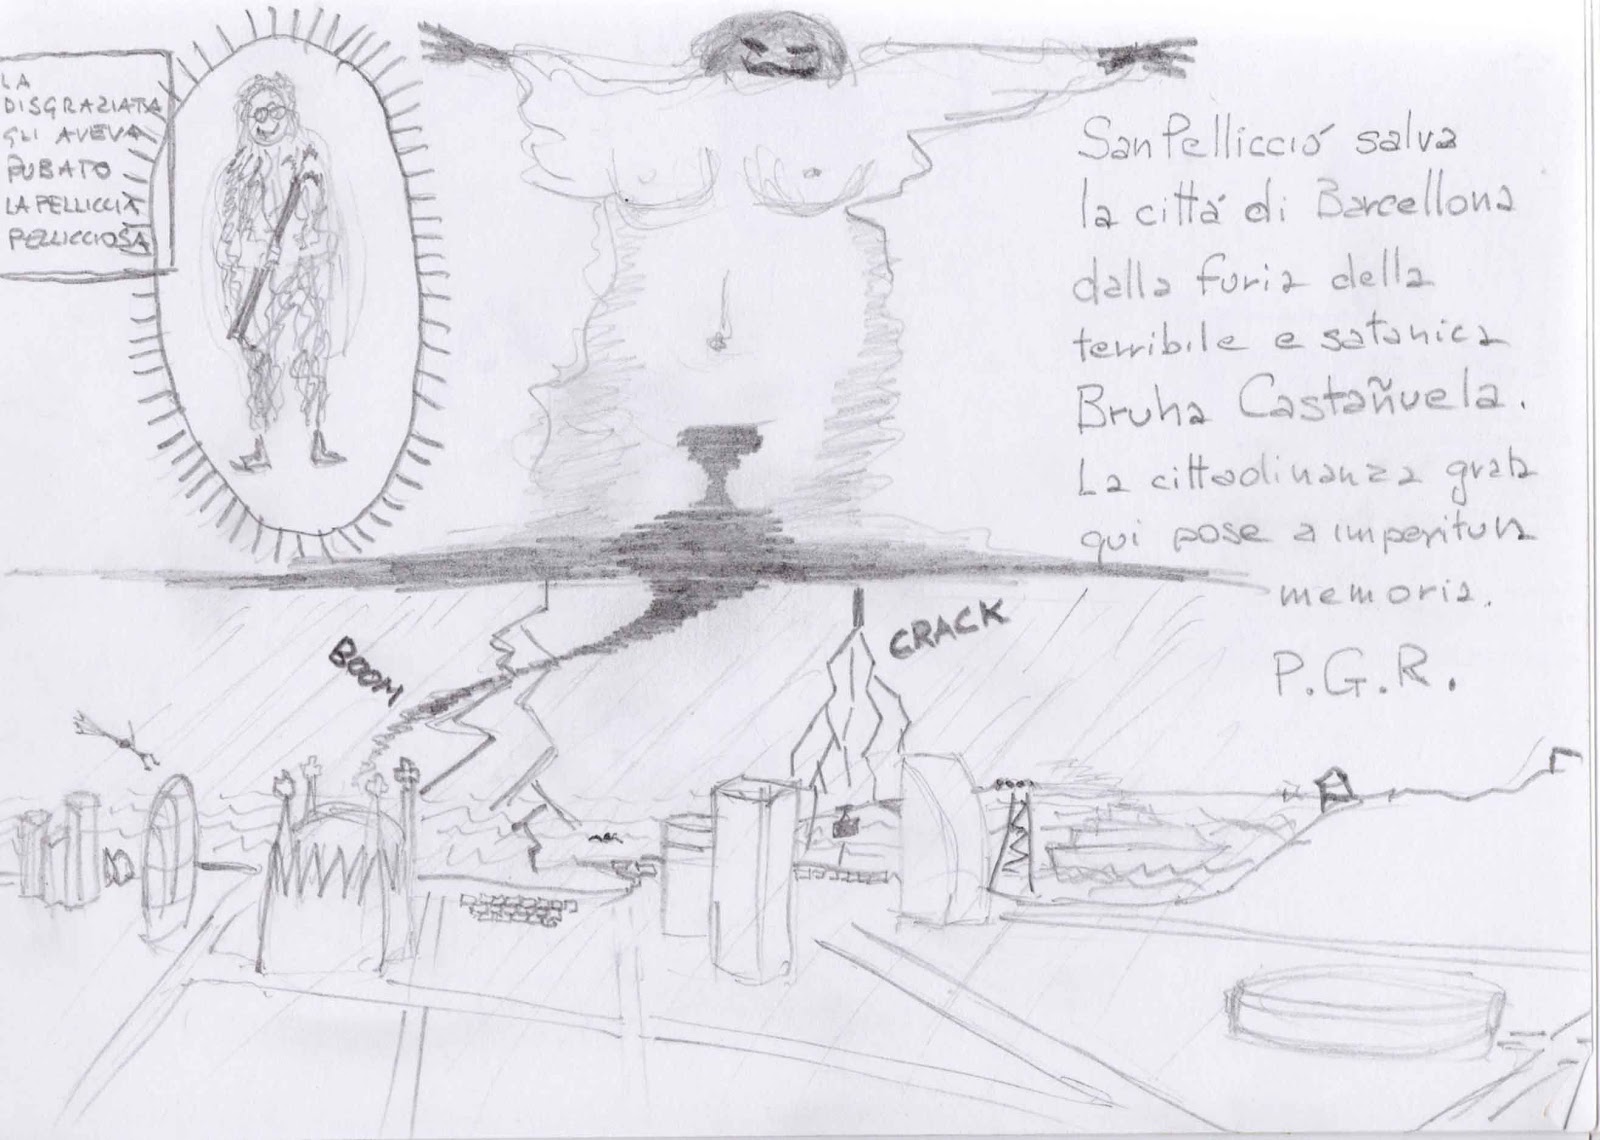 LA
DISGRAZIATA
GLI AVEVA
RUBATO
LA PELLICCIA
PELLICCIOSA
San Pellicció salva
la cittá di Barcellona
dalla furia della
terribile e satanica
Bruha Castañuela.
La cittadinanza grata
qui pose a imperitura
memoria.
P.G.R.
BOOM
CRACK